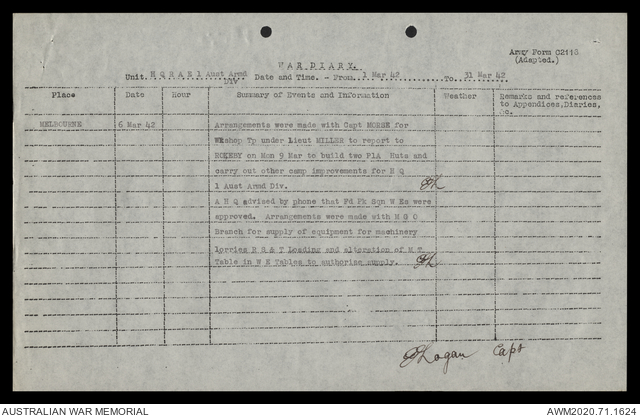 Army Form C2118
(Adapted.)
WAR DIARY.
Unit. H Q R A E 1 Aust Armd Div Date and Time. - From. 1 Mar 42 To. 31 Mar 42
Place Date Hour Summary of Events and Information Weather Remarks and references to Appendices, Diaries, &c.
MELBOURNE 6 Mar 42 Arrangements were made with Capt MORSE for
Wkshop Tp under Lieut MILLER to report to
ROKEBY on Mon 9 Mar to build two P1A Huts and
carry out other camp improvements for H Q
1 Aust Armd Div.
A H Q advised by phone that Fd Pk Sqn W Es were
approved. Arrangements were made with M G O
Branch for supply of equipment for machinery
lorries R S & T Loading and alteration of M T
Table in W E Tables to authorise supply.
Logan Capt
AUSTRALIAN WAR MEMORIAL
AWM2020.71.1624